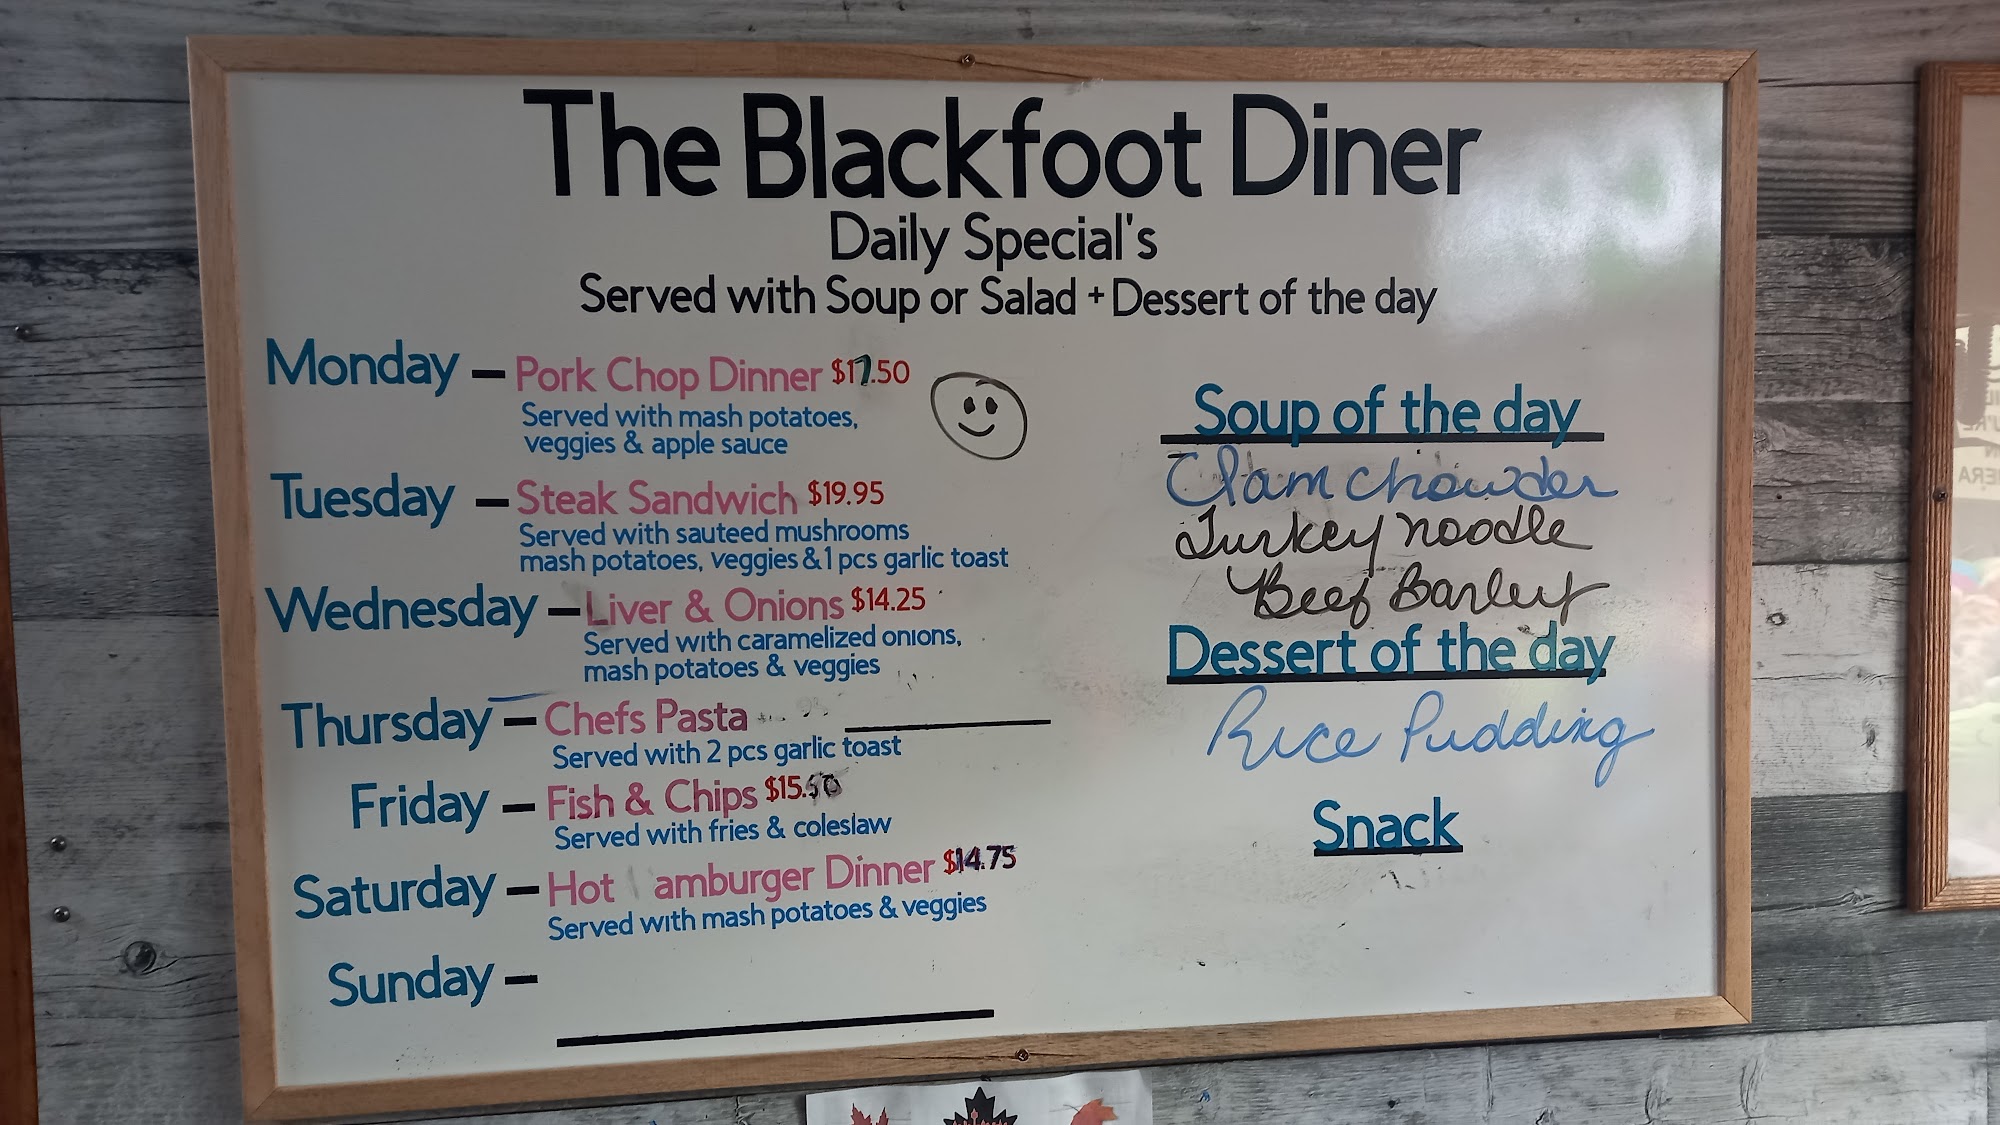 The Blackfoot Diner
Daily Special's
Served with Soup or Salad + Dessert of the day
Monday – Pork Chop Dinner $17.50
Served with mash potatoes,
veggies & apple sauce
Tuesday – Steak Sandwich $19.95
Served with sauteed mushrooms
mash potatoes, veggies & 1 pcs garlic toast
Wednesday – Liver & Onions $14.25
Served with caramelized onions,
mash potatoes & veggies
Thursday – Chefs Pasta
Served with 2 pcs garlic toast
Friday – Fish & Chips $15.50
Served with fries & coleslaw
Saturday – Hot amburger Dinner $14.75
Served with mash potatoes & veggies
Sunday –
Soup of the day
Clam chowder
Turkey noodle
Beef Barley
Dessert of the day
Rice Pudding
Snack